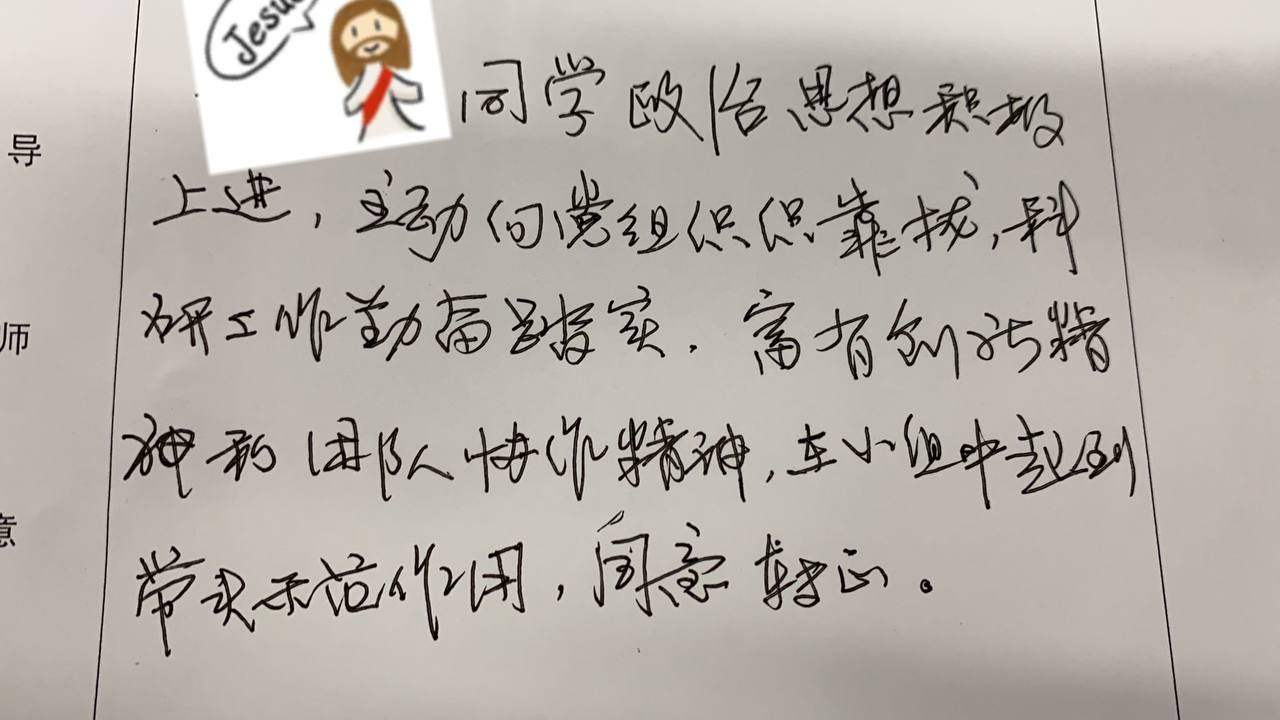 Jesus
同学政治思想积极
导
上进，主动向党组织织靠拢，科
师
研工作勤奋踏实，富有创新精
神和团队协作精神，在小组中起到
意
带头示范作用，同意转正。